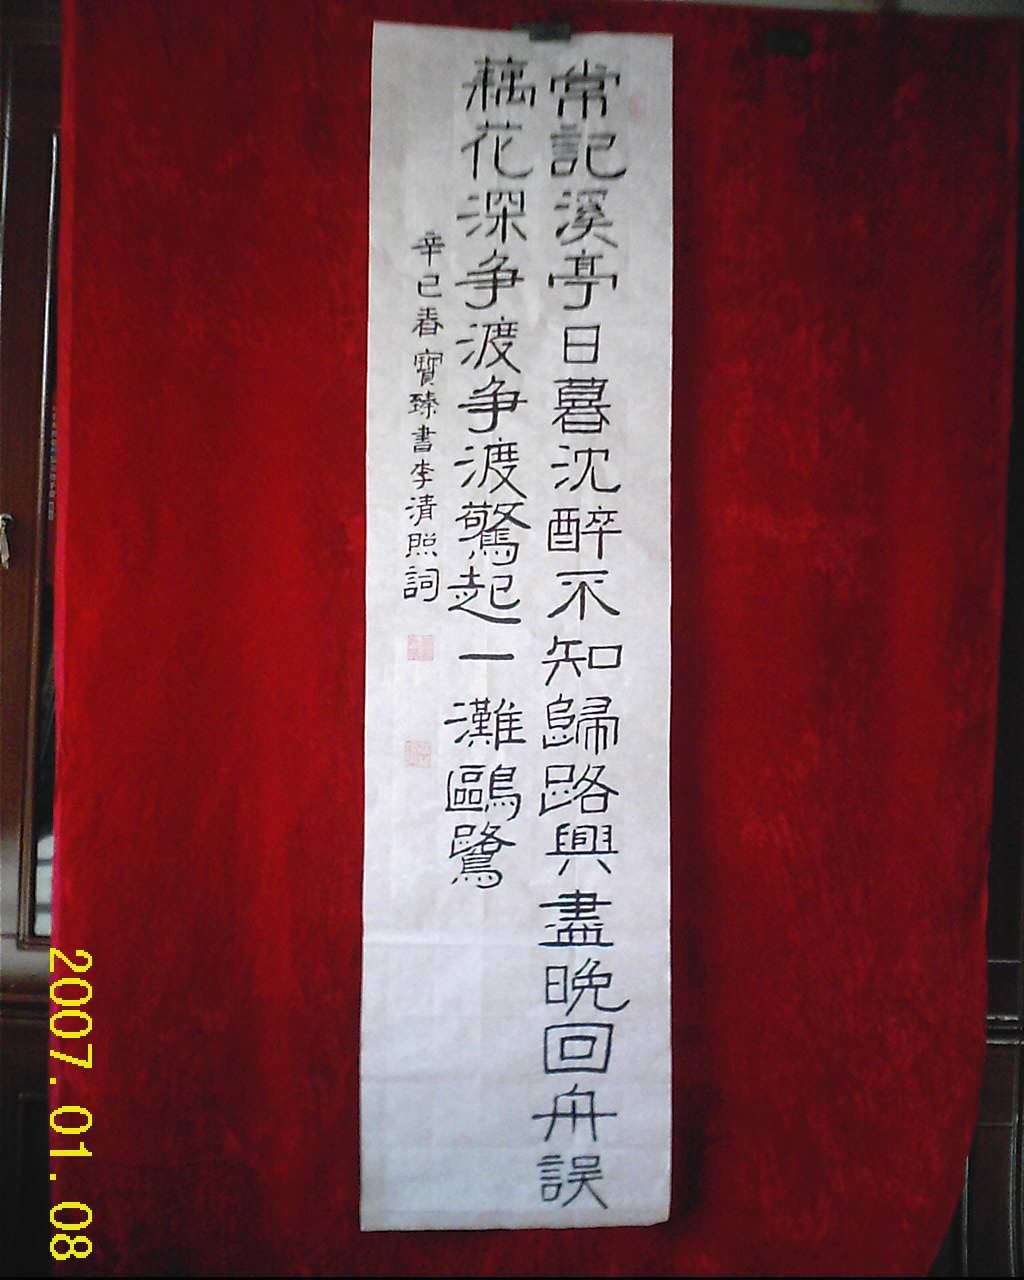 常記溪亭日暮沈醉不知歸路興盡晚回舟誤
藕花深争渡争渡驚起一灘鷗鷺
辛巳春寶臻書李清照詞
2007.01.08